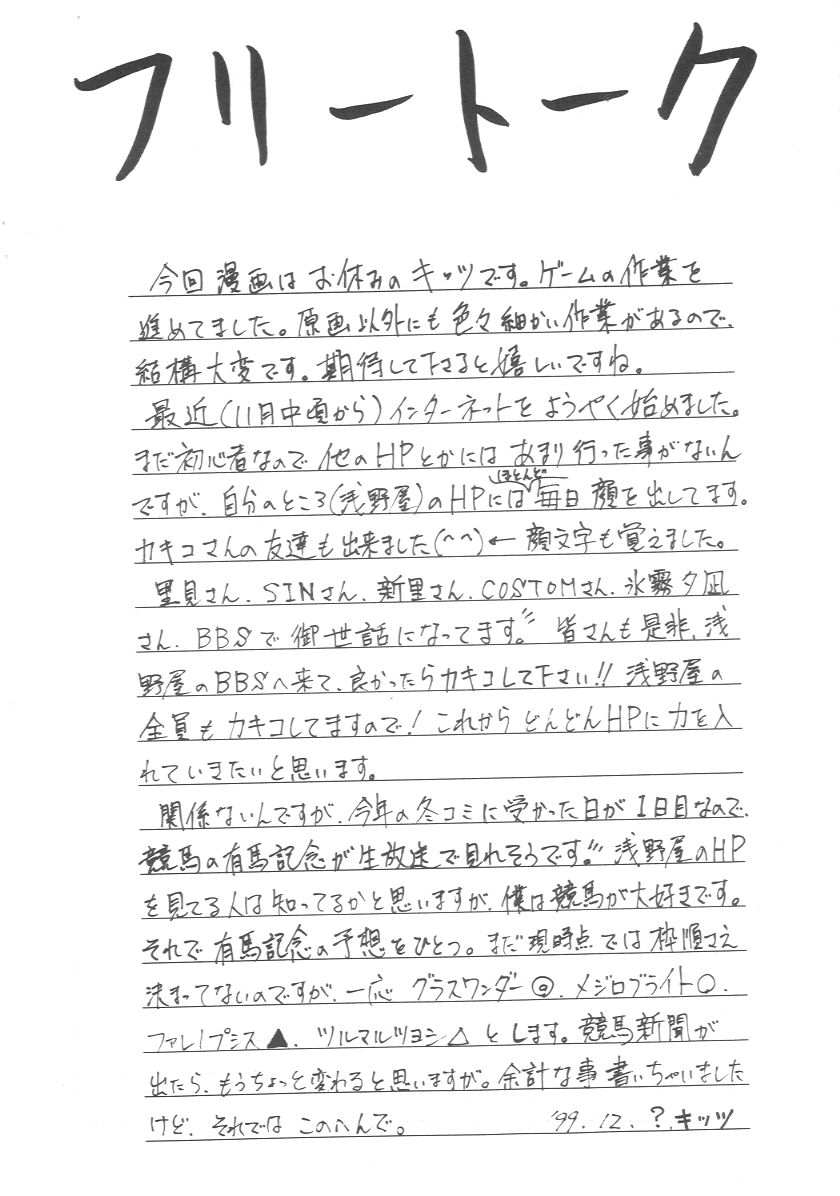 フリートーク
今回漫画はお休みのキッツです。ゲームの作業を
進めてました。原画以外にも色々細かい作業があるので、
結構大変です。期待して下さると嬉しいですね。
最近(11月中頃から)インターネットをようやく始めました。
まだ初心者なので他のHPとかにはあまり行った事がないん
ほとんど
ですが、自分のところ(浅野屋)のHPには毎日顔を出してます。
カキコさんの友達も出来ました(^^)←顔文字も覚えました。
里見さん、SINさん、新里さん、COSTOMさん、氷霧夕凪
さん、BBSで御世話になってます。〃 皆さんも是非、浅
野屋のBBSへ来て、良かったらカキコして下さい!! 浅野屋の
全員もカキコしてますので! これからどんどんHPに力を入
れていきたいと思います。
関係ないんですが、今年の冬コミに受かった日が1日目なので、
競馬の有馬記念が生放送で見れそうです。〃 浅野屋のHP
を見てる人は知ってるかと思いますが、僕は競馬が大好きです。
それで有馬記念の予想をひとつ。まだ現時点では枠順さえ
決まってないのですが、一応 グラスワンダー◎、メジロブライト○、
ファレノプシス▲、ツルマルツヨシ△とします。競馬新聞が
出たら、もうちょっと変わると思いますが。余計な事書いちゃいました
けど、それではこのへんで。 '99.12.?.キッツ